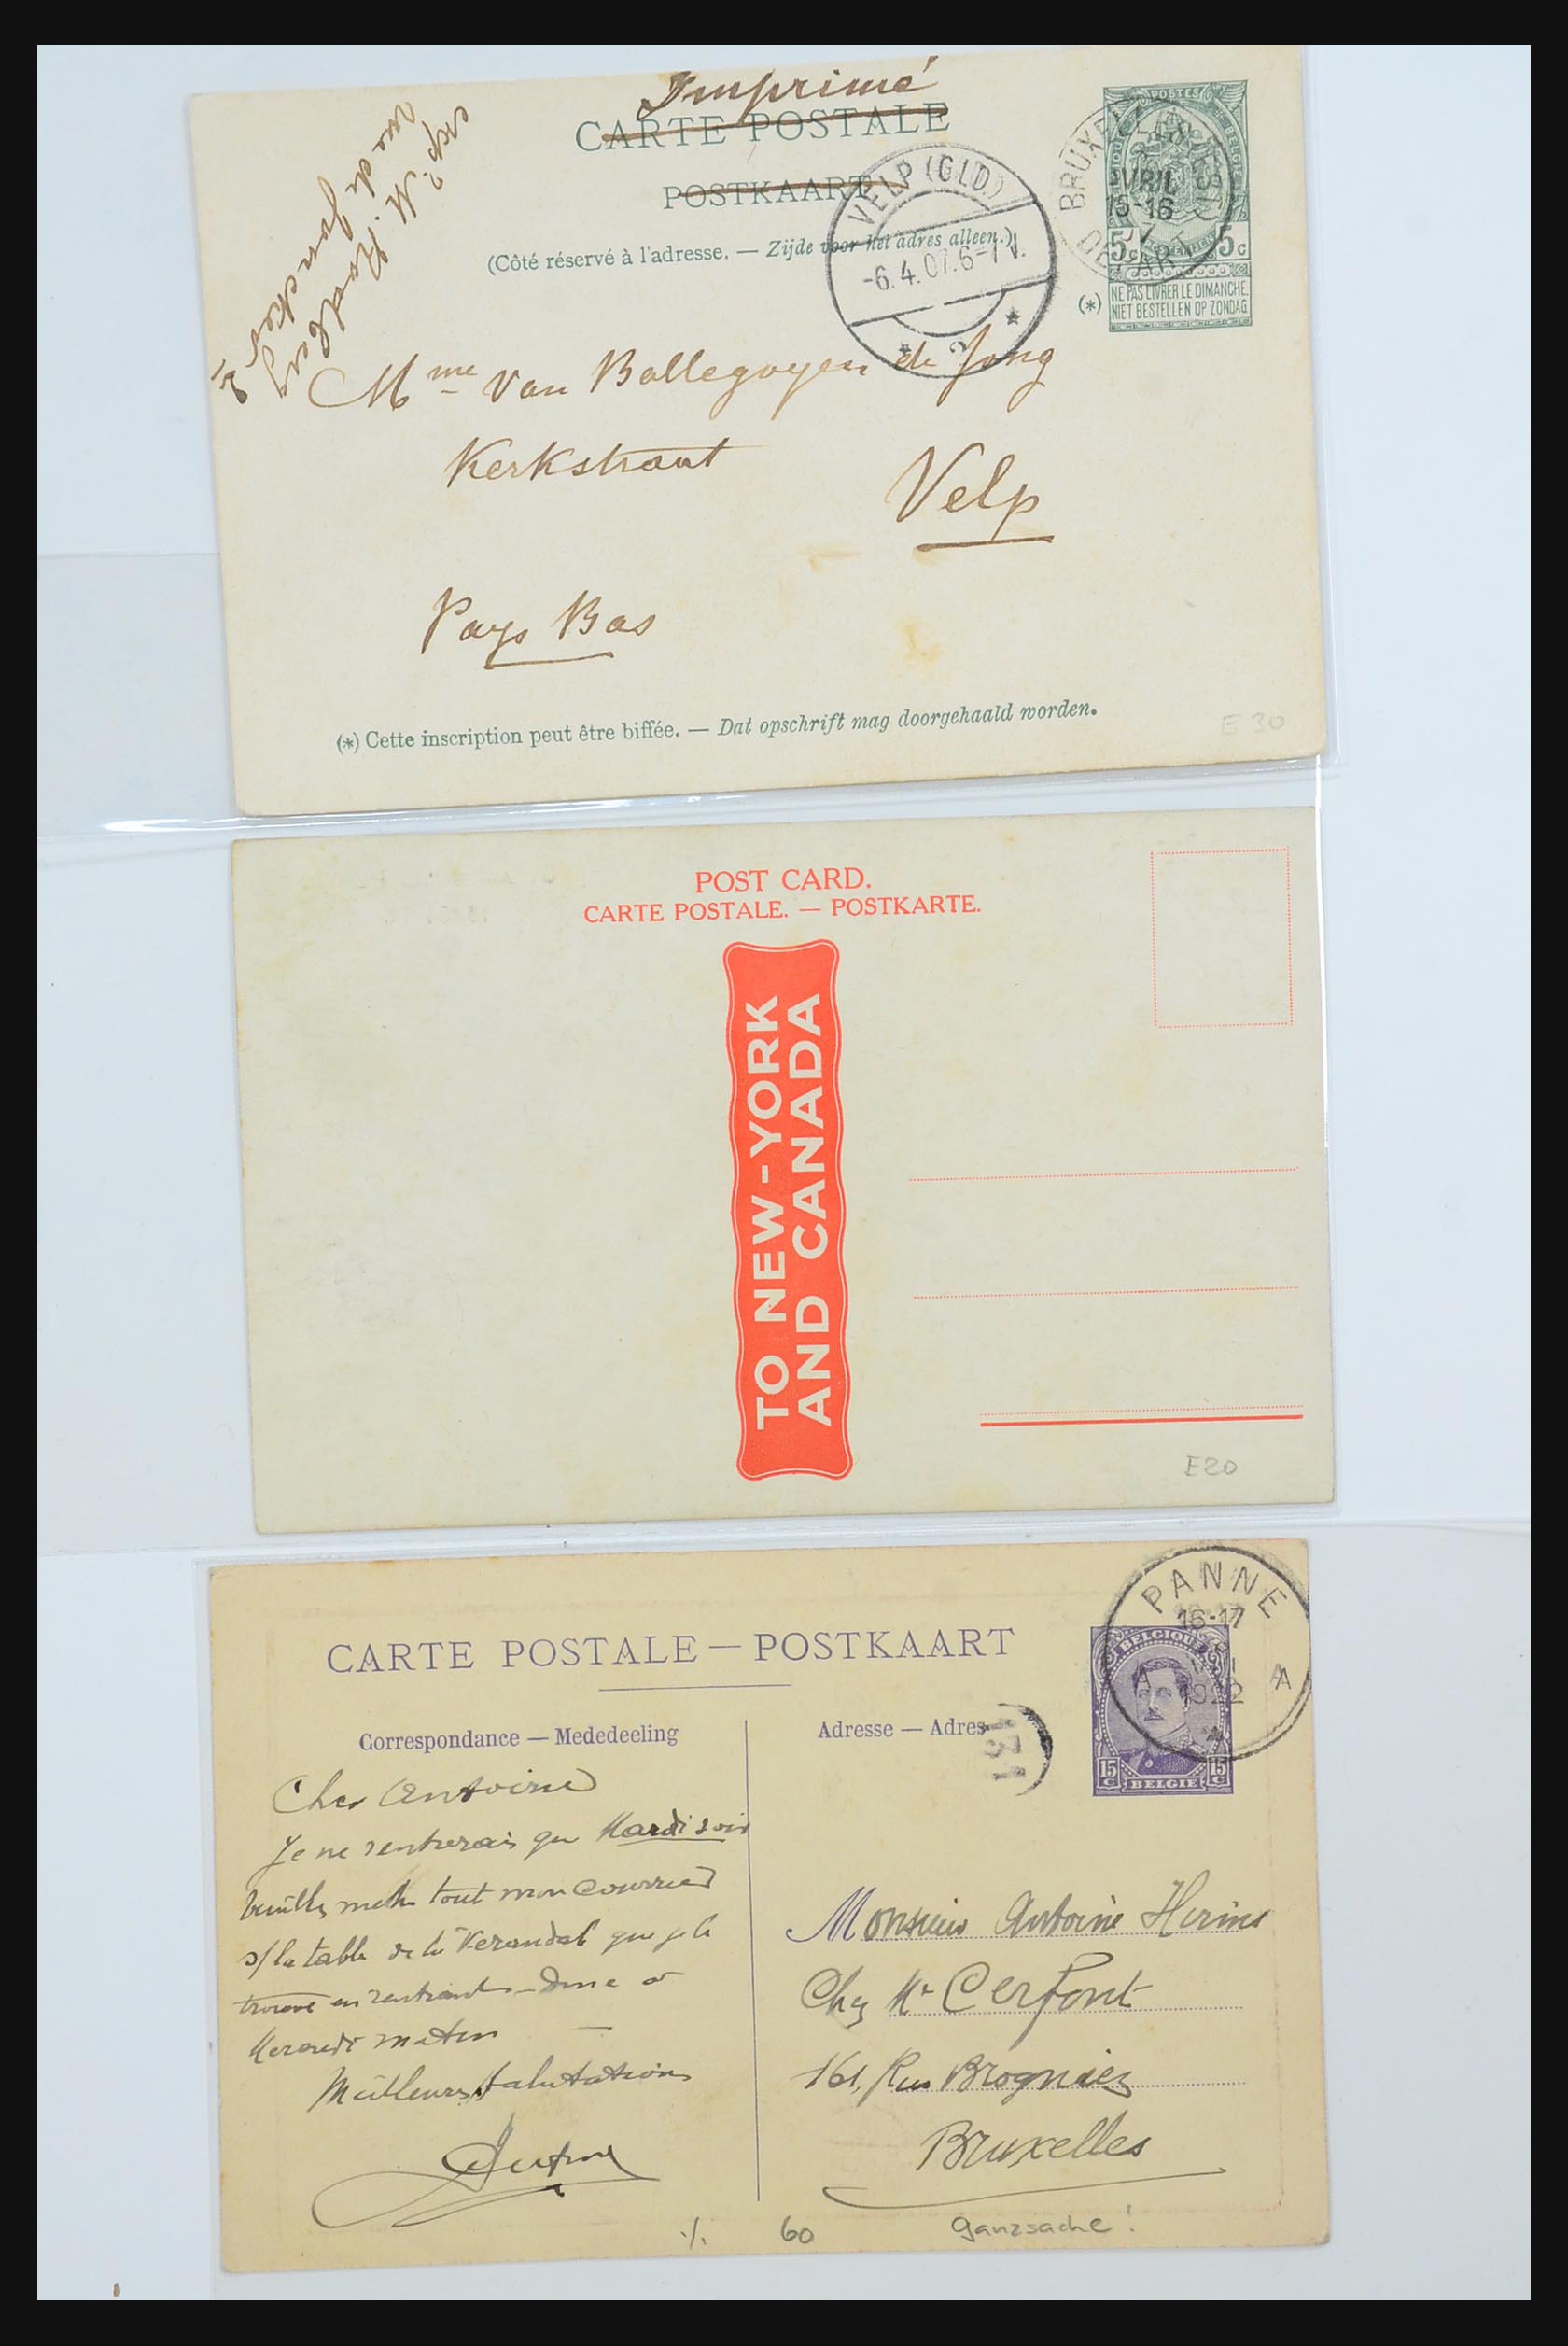 Imprimé
CARTE POSTALE
POSTKAART
(Côté réservé à l'adresse. — Zijde voor het adres alleen.)
VELP (GLD.)
-6.4.07.6-7V.
2
BRUXELLES
AVRIL
15-16
DEPART
POSTES
5c 5c
NE PAS LIVRER LE DIMANCHE.
NIET BESTELLEN OP ZONDAG
(*)
exp: M. Rodberg
rue de Joncker
Mme Van Ballegoyen de Jong
Kerkstraat
Velp
Pays Bas
(*) Cette inscription peut être biffée. — Dat opschrift mag doorgehaald worden.
E 30
POST CARD.
CARTE POSTALE. — POSTKARTE.
TO NEW-YORK
AND CANADA
E20
PANNE
16-17
1922
A A
BELGIQUE
15 C 15 C
BELGIE
CARTE POSTALE — POSTKAART
Correspondance — Mededeeling
Adresse — Adres
131
Cher Antoine
Je ne rentrerais que Mardi soir
Veuillez mettre tout mon courrier
s/ la table de la Verandah que je le
trouve en rentrant — Donc à
Mercredi matin —
Meilleures Salutations
Monsieur Antoine Herins
Chez Mr Cerfont
161, Rue Brogniez
Bruxelles
·/. 60 Ganzsache!